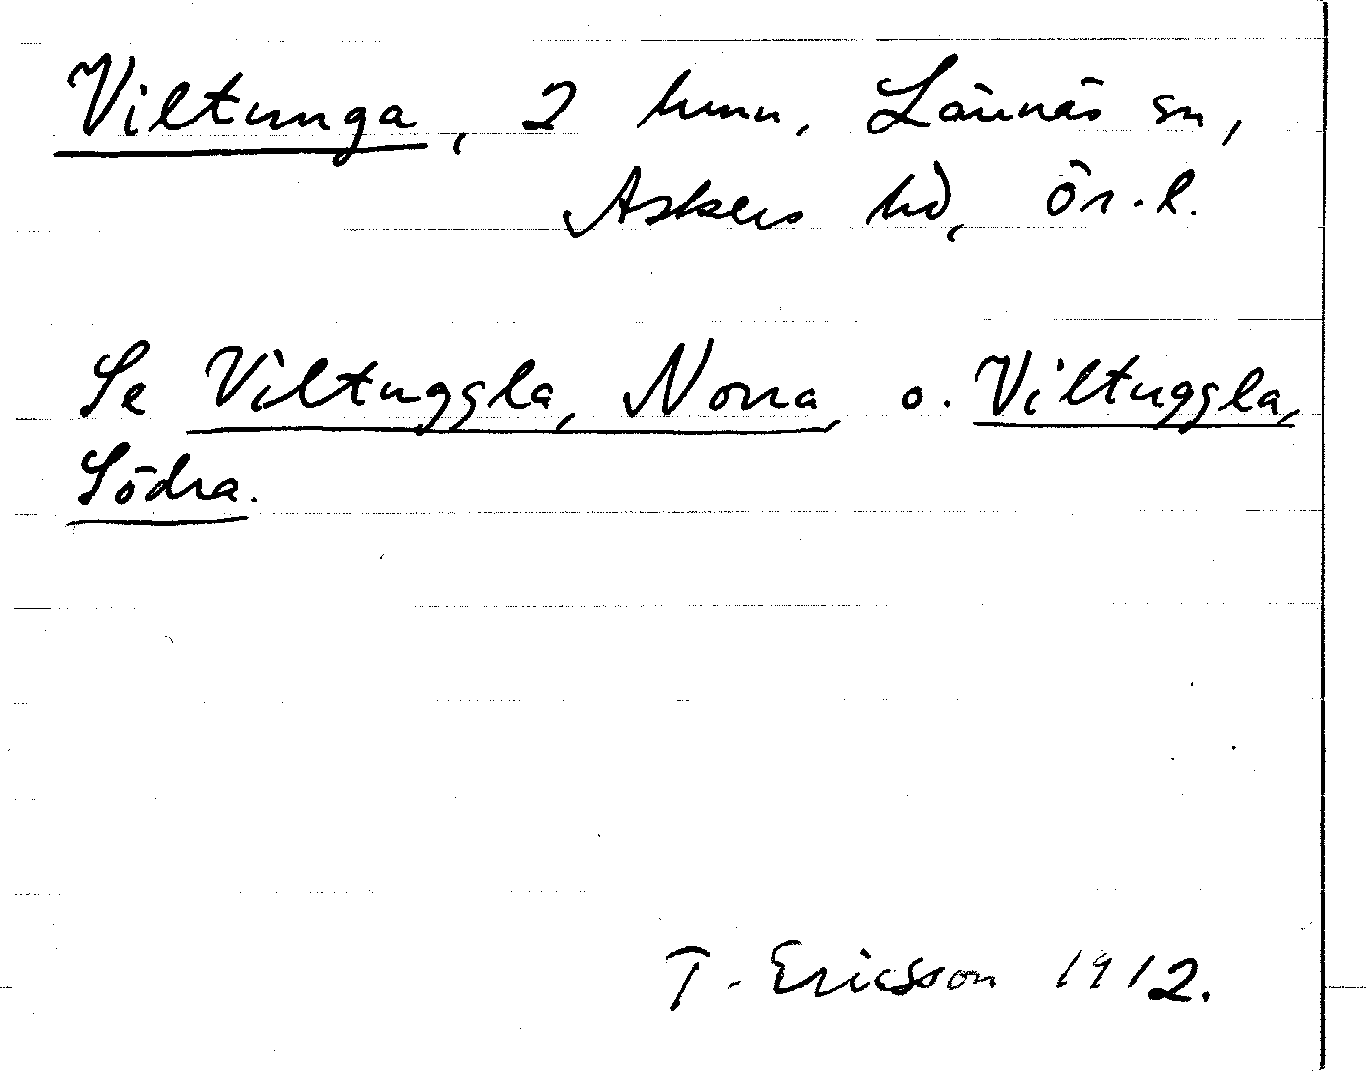 Viltunga, 2 hmn, Lännäs sn,
Askers hd, Ör. l.
Se Viltuggla, Norra, o. Viltuggla,
Södra.
T. Ericsson 1912.